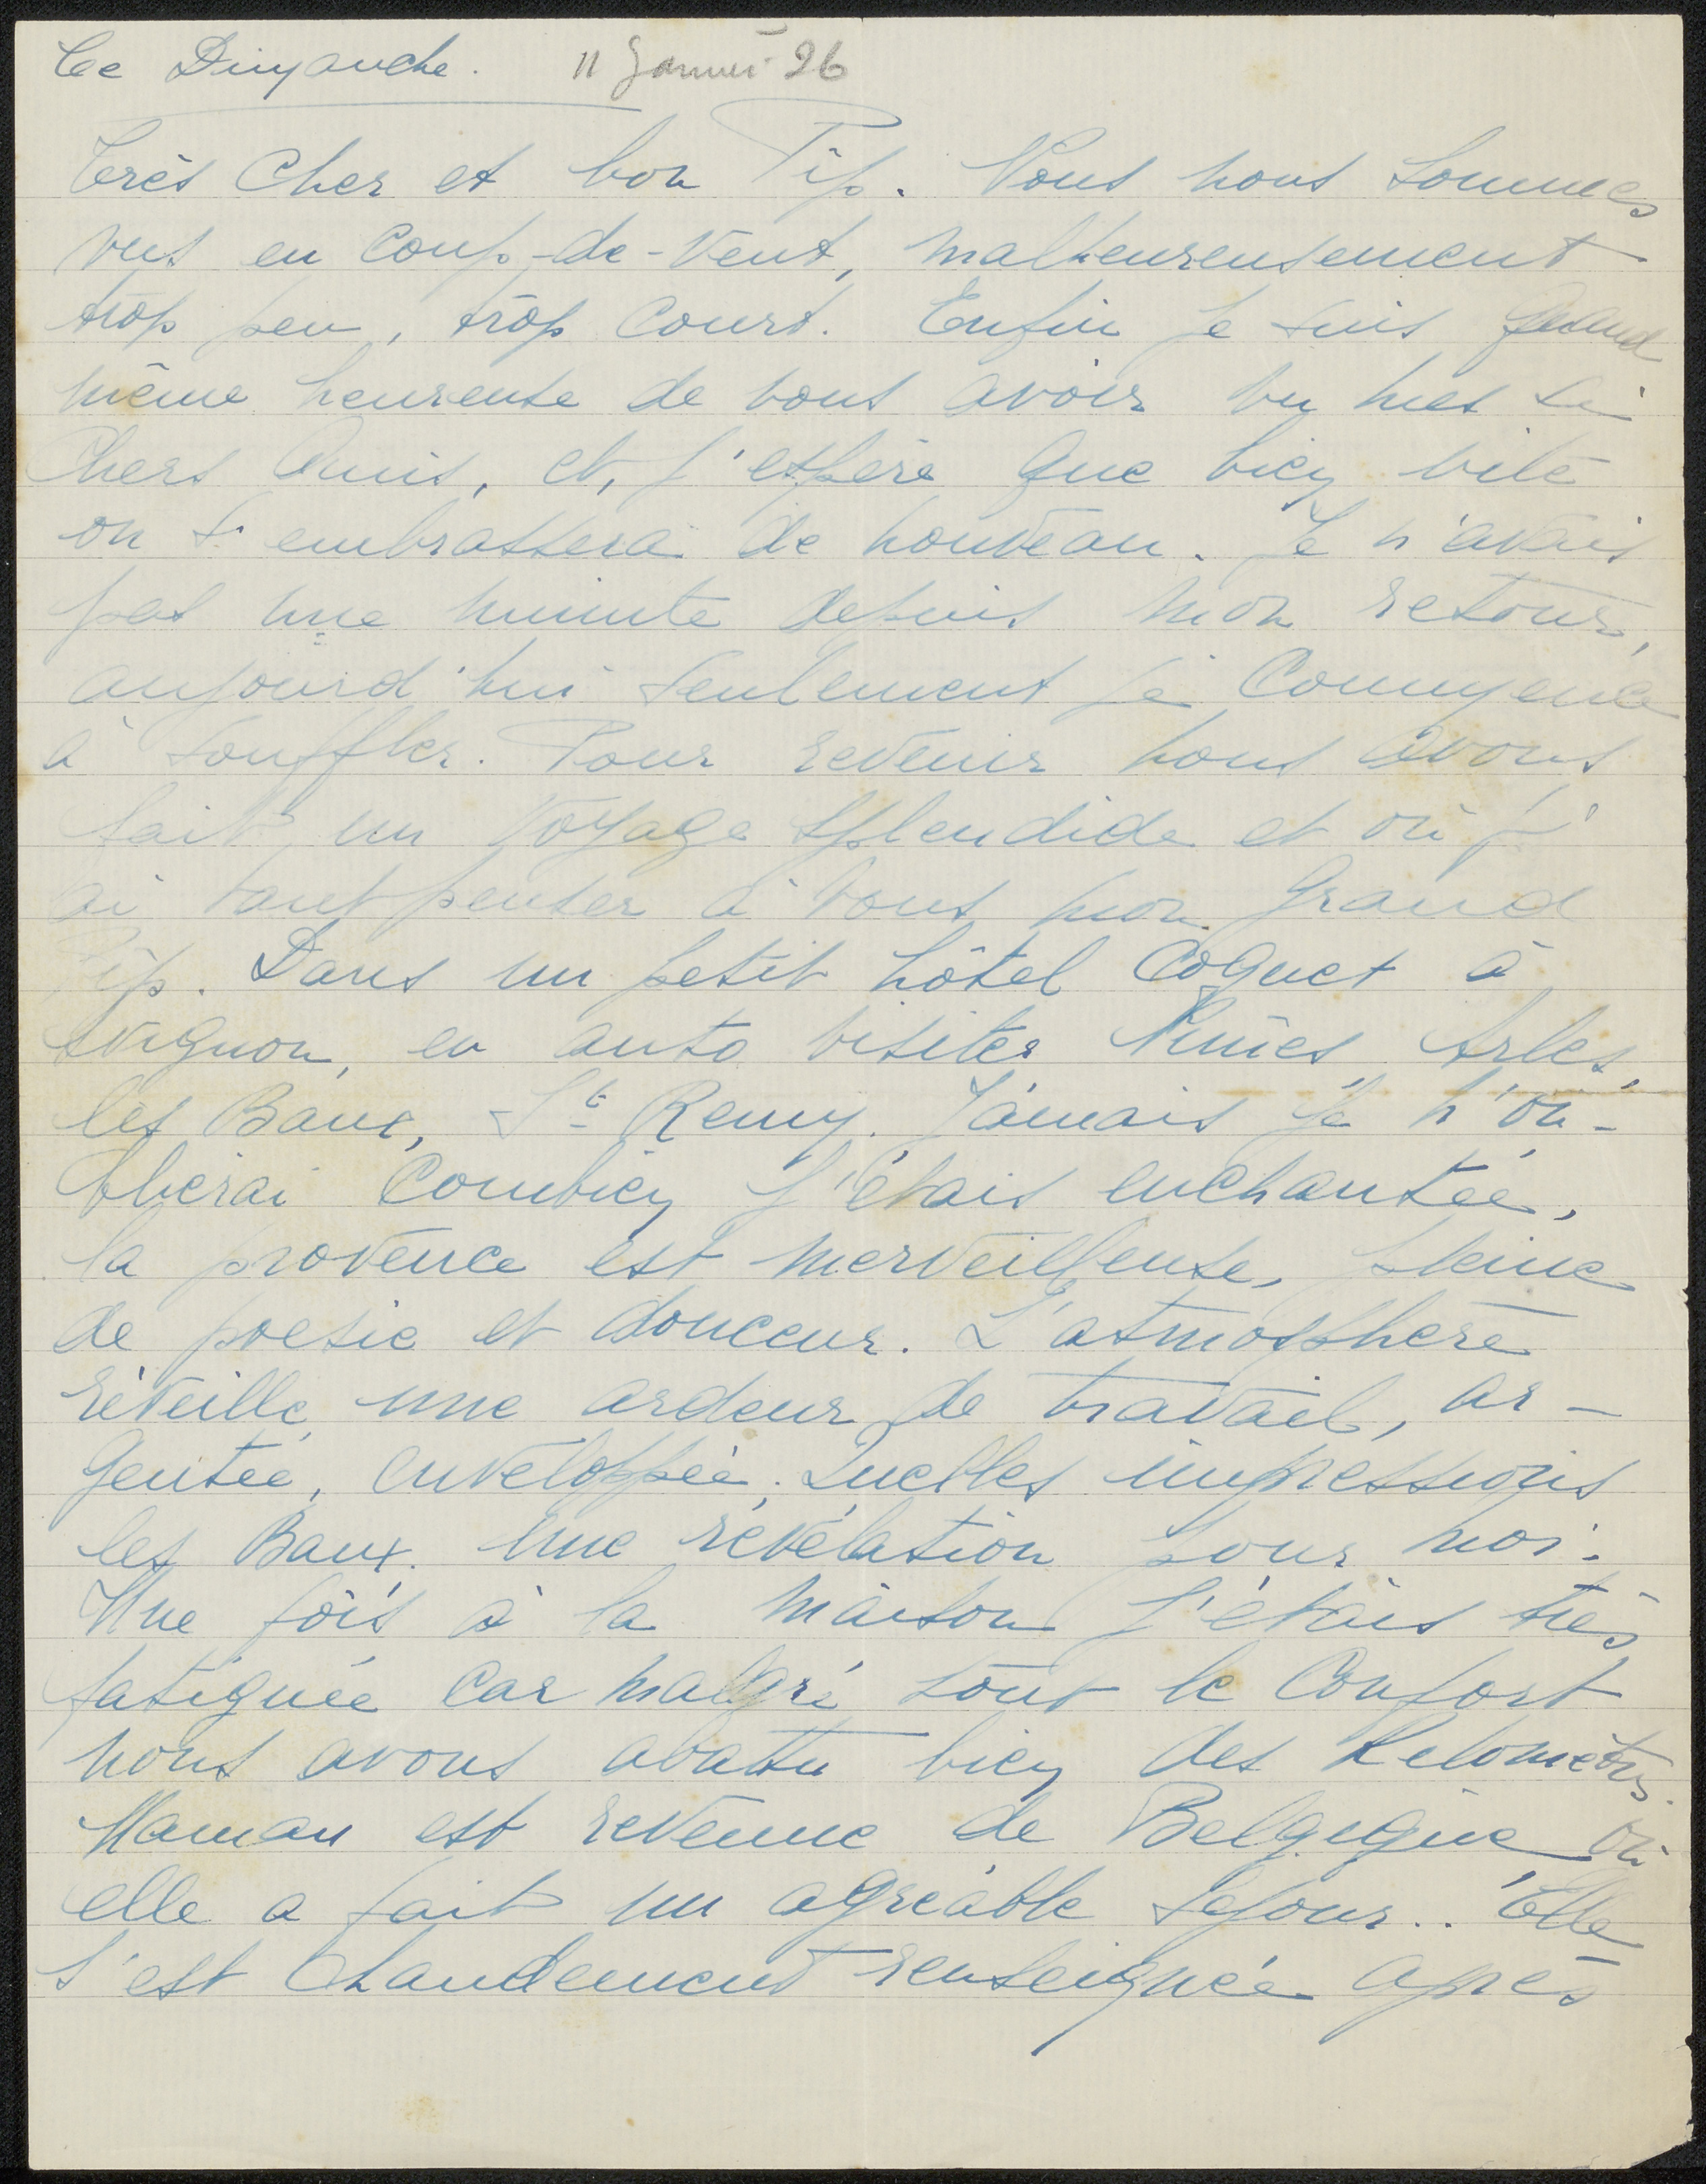 Ce Dimanche. 11 Janvier 26
Très Cher et bon Pip. Nous nous sommes
vus en coup-de-vent, malheureusement
trop peu, trop court. Enfin je suis quand
même heureuse de vous avoir vu mes si
Chers Amis, et, j'espère que bien vite
on s'embrassera de nouveau. Je n'avais
pas une minute depuis mon retour,
aujourd'hui seulement je Commence
à souffler. Pour revenir nous avons
fait un voyage splendide et où j'
ai tant penser à vous mon grand
Pip. Dans un petit hôtel Coquet à
Avignon, en auto visiter Nîmes, Arles,
les Baux, St Remy. Jamais je n'ou-
blierai Combien j'étais enchantée,
la provence est merveilleuse, pleine
de poesie et douceur. L'atmosphère
réveille une ardeur de travail, ar-
gentée, enveloppée. Quelles impressions
les Baux. Une révélation pour moi.
Une fois à la maison j'étais très
fatiguée Car malgré tout le Confort
nous avons abattu bien des Kelomètres.
Maman est revenue de Belgique où
elle a fait un agréable sejour.. Elle
s'est Chaudement renseignée après